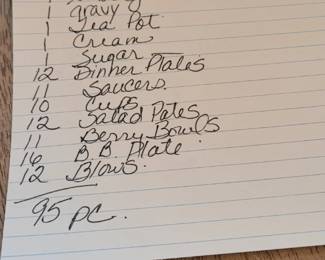 1 Gravy
1 Tea Pot
1 Cream
1 Sugar
12 Dinner Plates
11 Saucers
10 Cups
12 Salad Pates
11 Berry Bowls
16 B.B. Plate
12 Blows
95 PC.